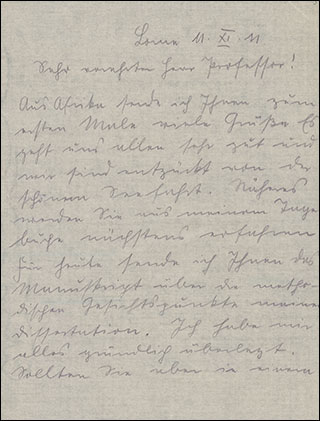 Lome 11. XI. 11
Sehr verehrter Herr Professor!
Aus Afrika sende ich Ihnen zum
ersten Male viele Grüße. Es
geht uns allen sehr gut und
wir sind entzückt von der
schönen Seefahrt. Näheres
werden Sie aus meinem Tage
buche nächstens erfahren
Für heute sende ich Ihnen das
Manuskript über die metho-
dischen Gesichtspunkte meiner
Dissertation. Ich habe mir
alles gründlich überlegt.
Sollten Sie aber in einem